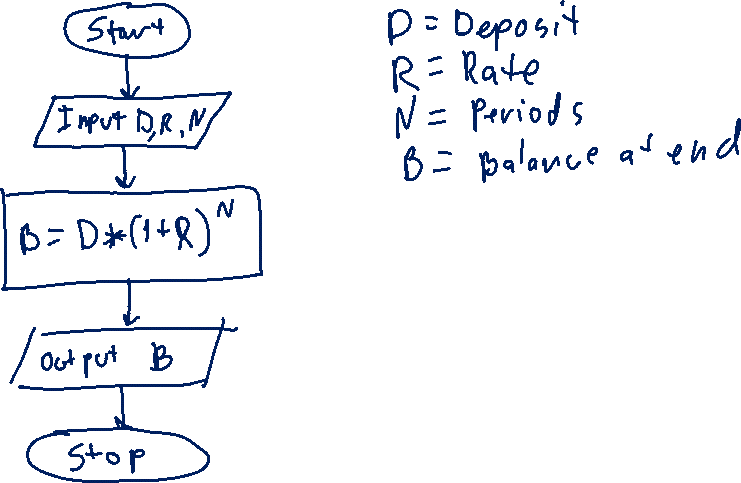 Start
Input D, R, N
B = D*(1+R)^N
Output B
Stop
D = Deposit
R = Rate
N = Periods
B = Balance at end